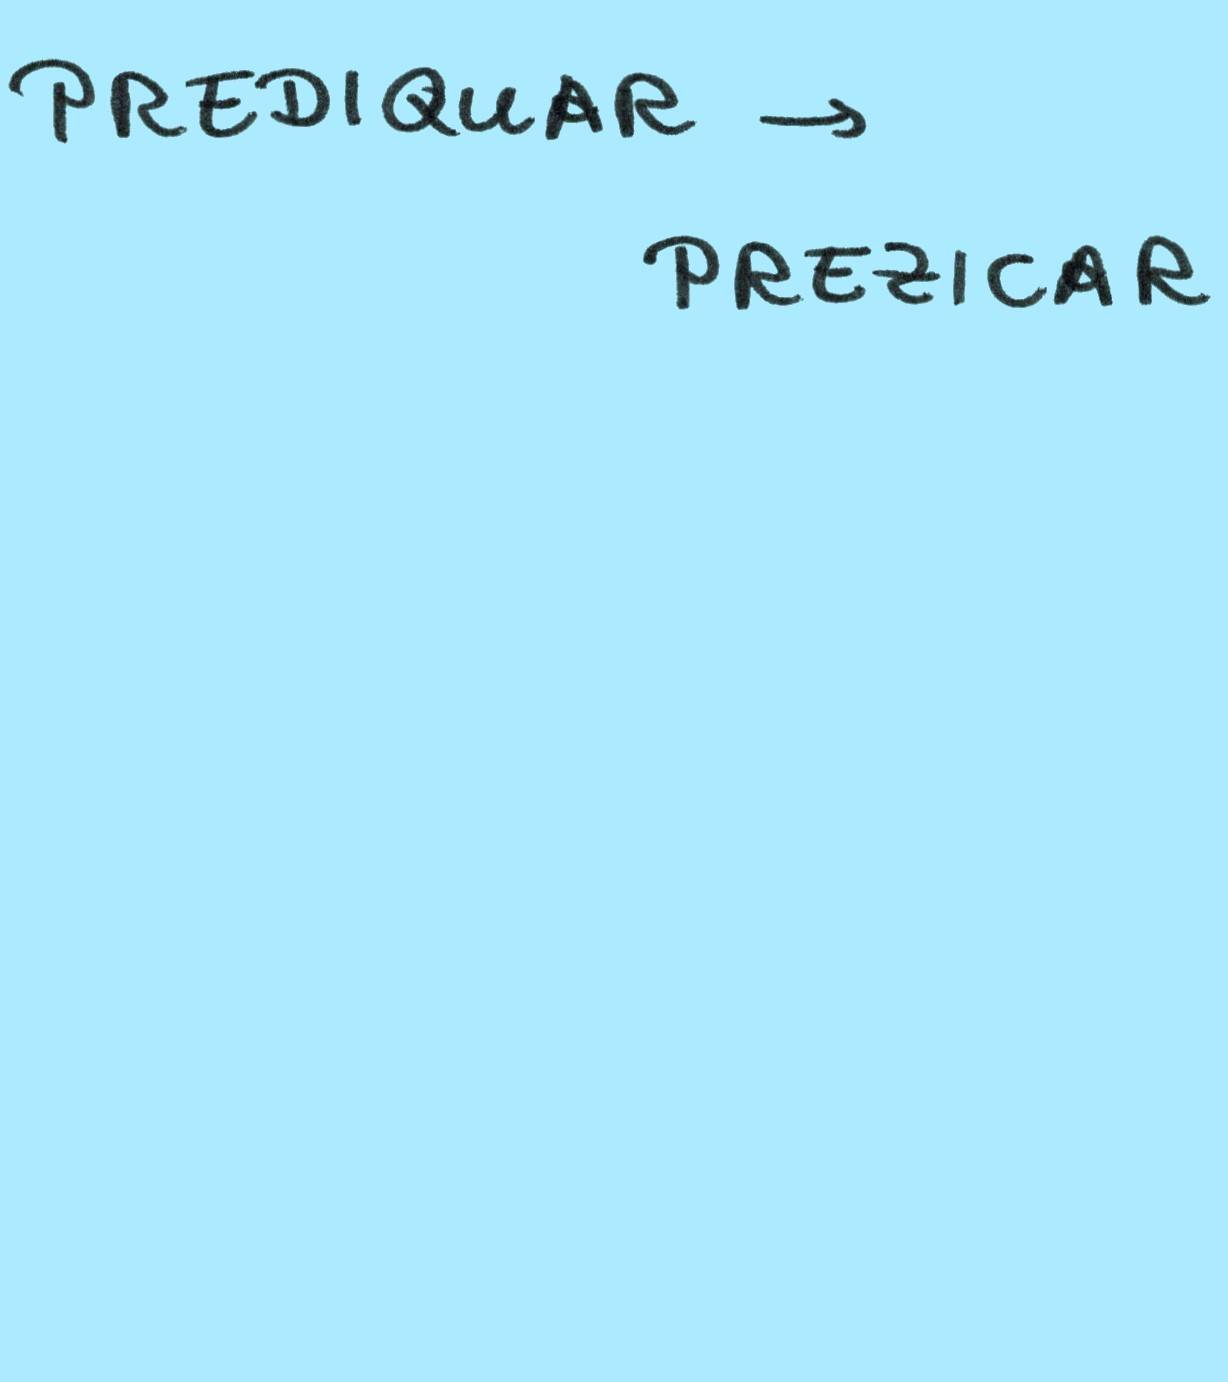 PREDIQUAR →
PREZICAR